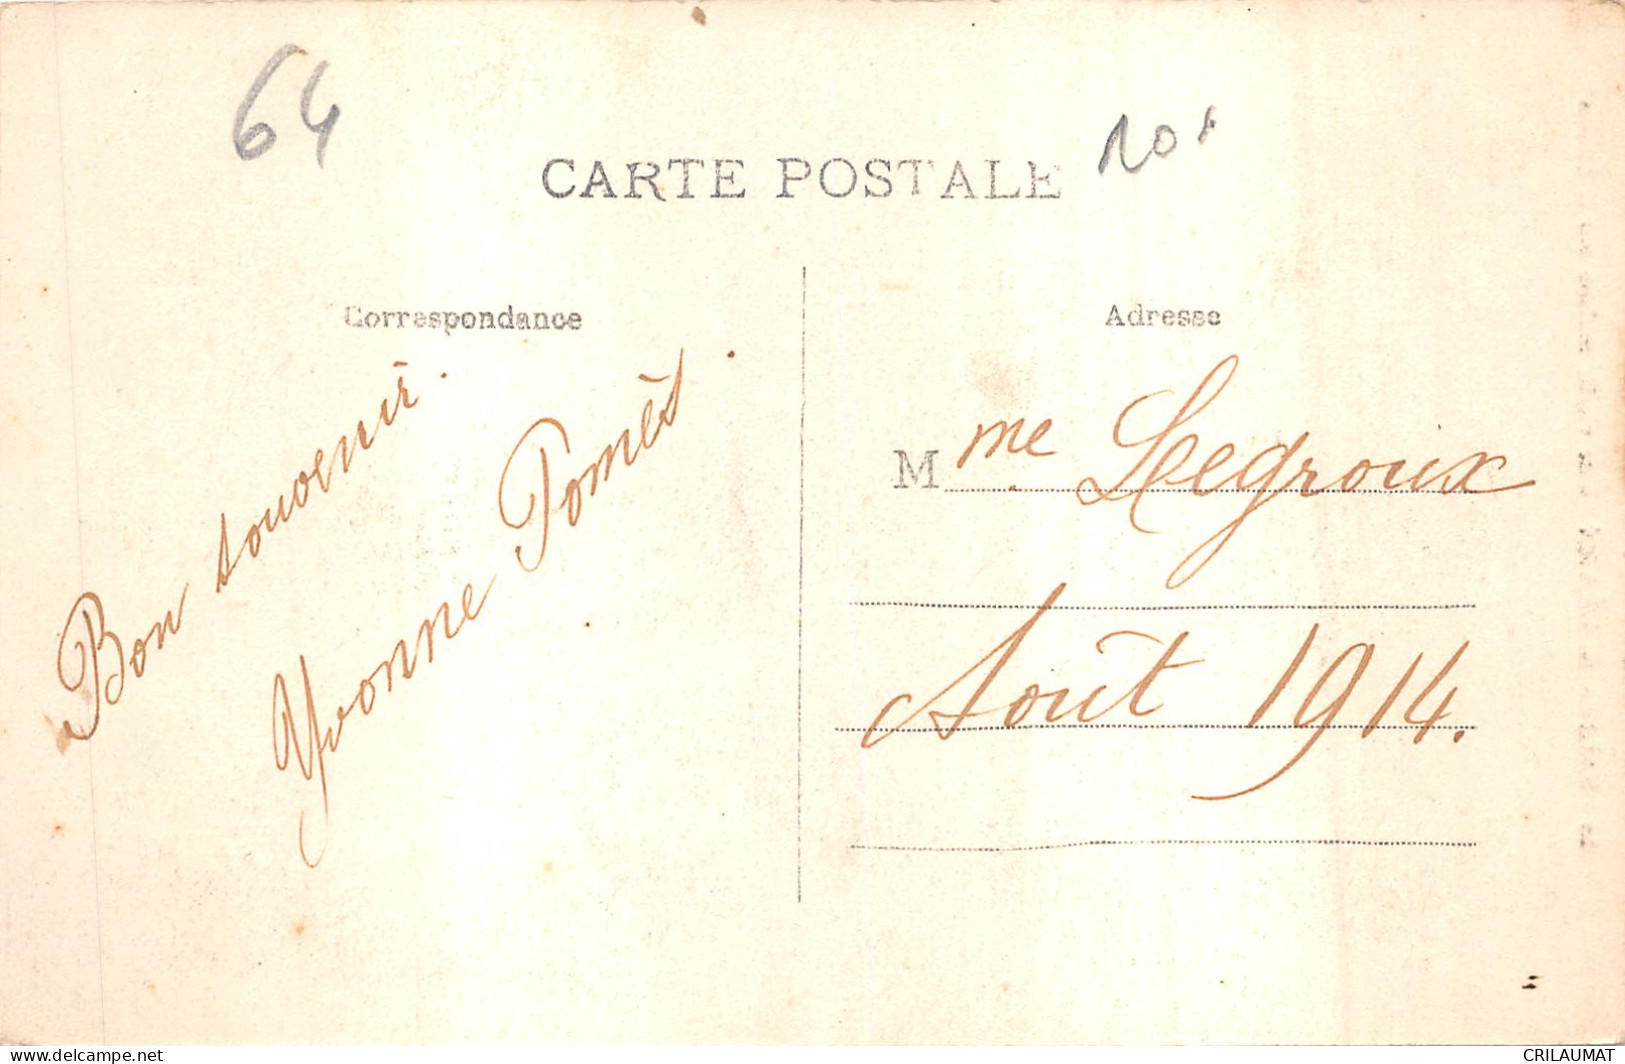 64
CARTE POSTALE
Correspondance
Bon souvenir.
Yvonne Pomès.
Adresse
Mme Legroux
Août 1914.
www.delcampe.net
CRILAUMAT